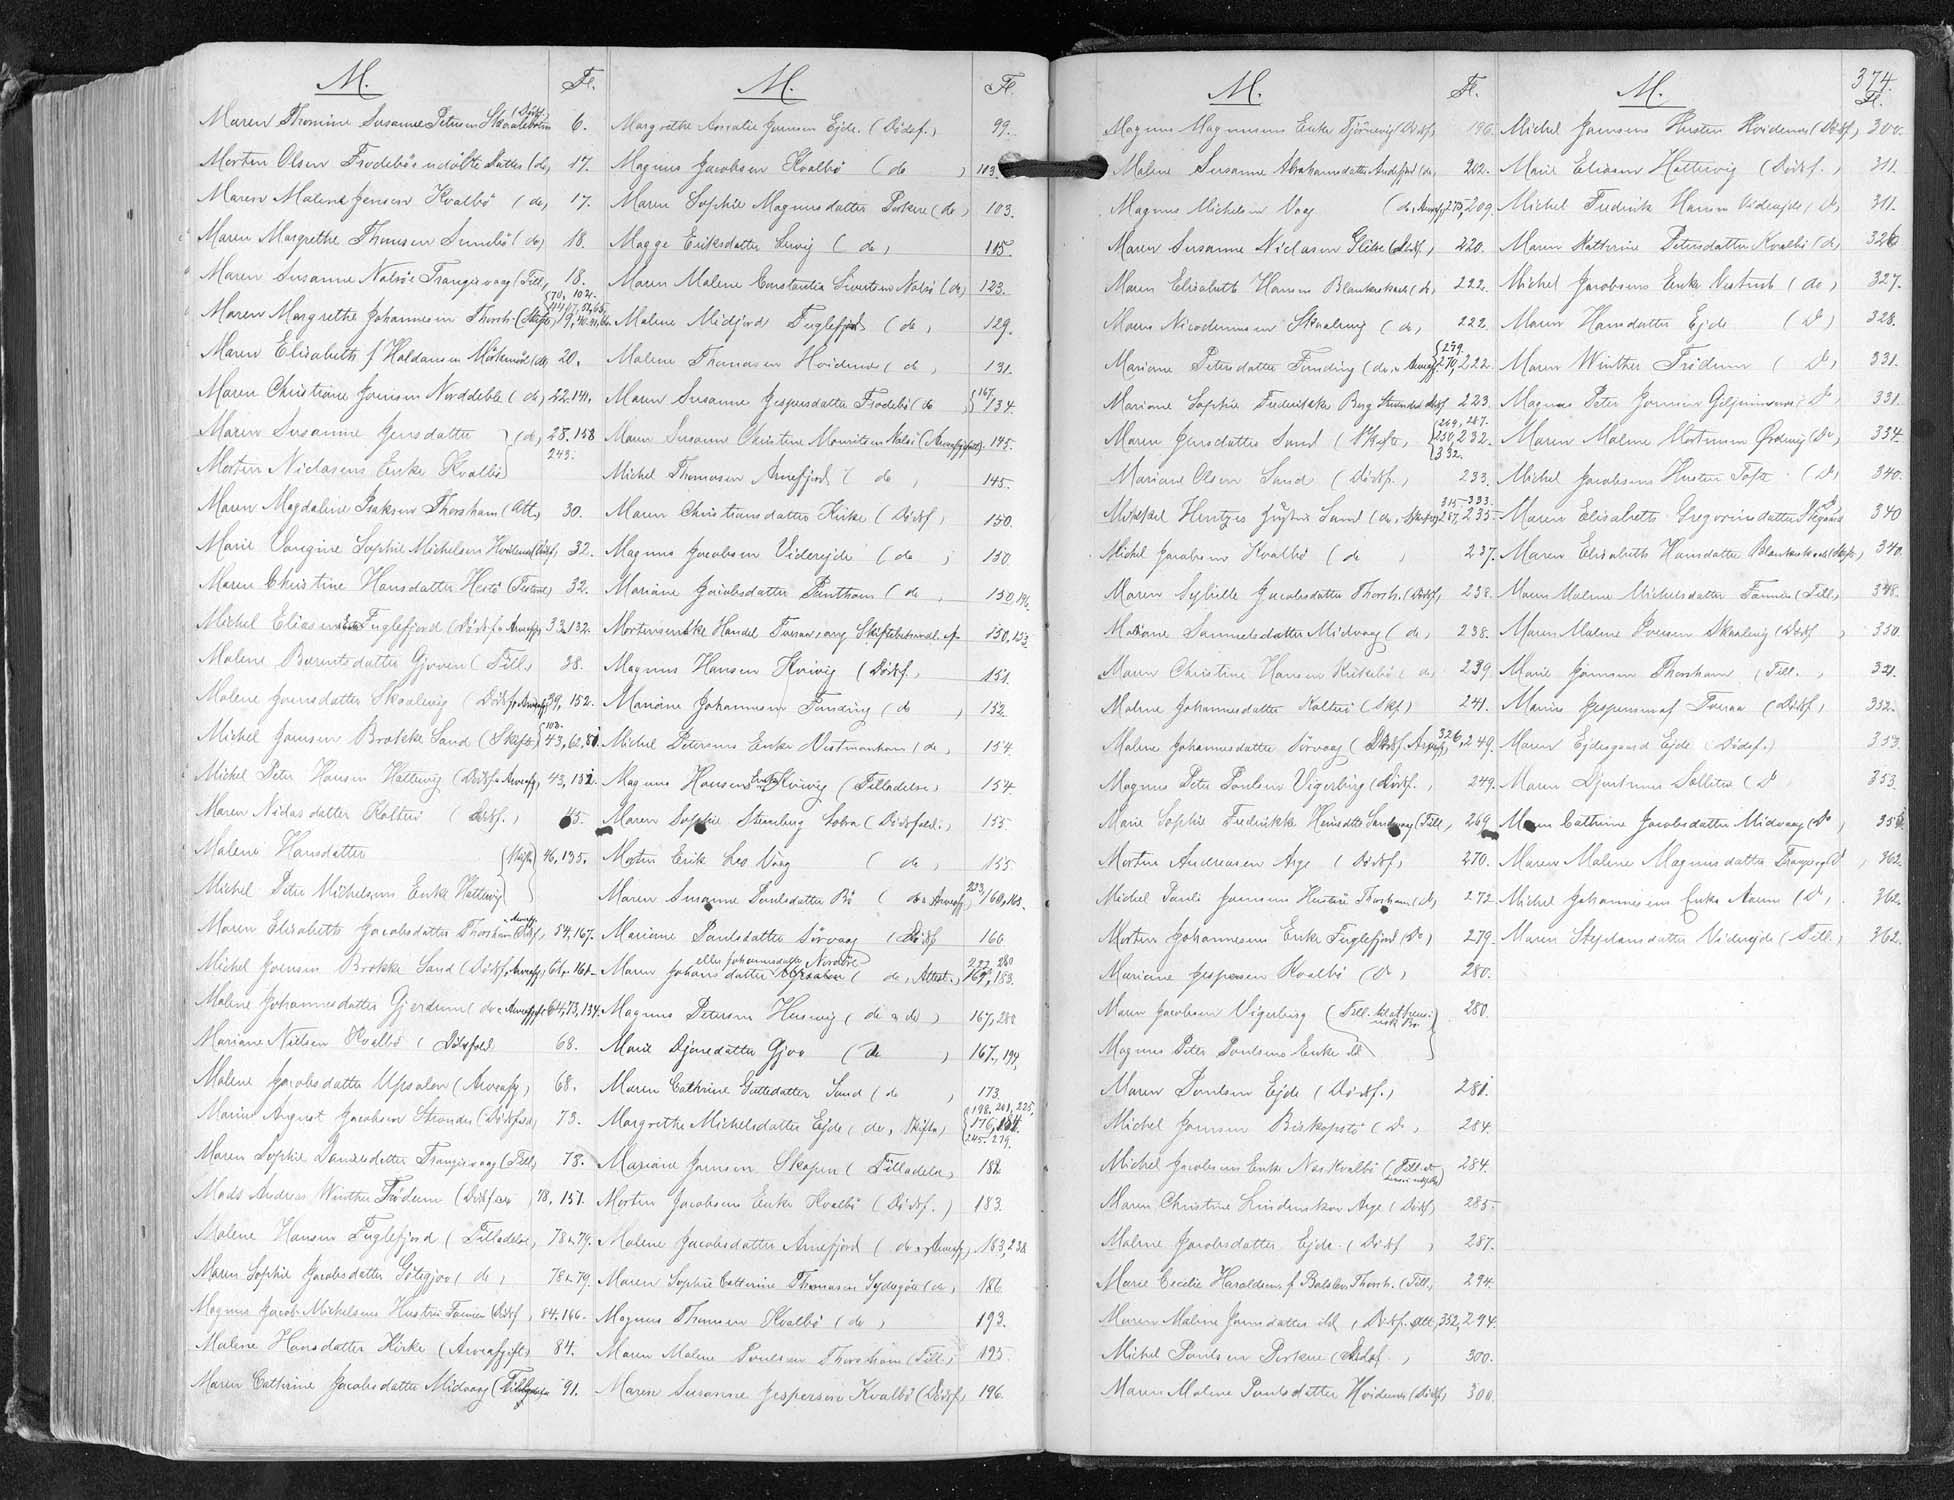 M. Fl.
Maren Thomine Susanne Petersen Skaalebotn (Dødsf.) 6.
Morten Olsen Frodebøs udøbte Datter (do) 17.
Maren Malene Jensen Kvalbø (do) 17.
Maren Margrethe Thomsen Sumbø (do) 18.
Maren Susanne Nolsøe Trangisvaag (Till) 18.
Maren Margrethe Johannesen Thorsh. (Skifte)
Maren Elisabeth f. Haldansen (do) 20.
Maren Christiane Joensen Norddeble (do) 22. 141.
Maren Susanne Jensdatter (do) 28. 158
Morten Niclasens Enke Kvalbø 243.
Maren Magdaline Isaksen Thorshavn (Att.) 30.
Marie Vangine Sophie Michelsen Hvidenæs (Dødsf) 32.
Maren Christine Hansdatter Hestø (Testam) 32.
Michel Eliasen Fuglefjord (Dødsf. Arveafg 33, 132.
Malene Barentsdatter Gjoveren (Till) 38.
Malene Joensdatter Skaalevig (Dødsf. Arveafg 39, 152.
Michel Joensen Brokke Sand (Skifte) 43, 62, 81
Michel Peter Hansen Hattervig (Dødsf. Arveafg) 43, 132.
Maren Niclasdatter Kolter (Dødsf.) 45.
Malene Hansdatter (Skifte) 46, 135.
Michel Peter Michelsens Enke Hattervig
Maren Elisabeth Jacobsdatter Thorshavn (Dødsf, Arveafg 54, 167.
Michel Joensen Brokke Sand (Dødsf, Arveafg) 61, 161
Malene Johannesdatter Gjerdum (do & Arveafgift 64, 73, 134.
Mariane Nielsen Kvalbø (Dødsfald) 68.
Malene Jacobsdatter Upsalen (Arveafg) 68.
Marius August Jacobsen Strander (Dødsfald) 73.
Maren Sophie Danielsdatter Trangisvaag (Till) 78.
Mads Andreas Winther Frodum (Dødsf. 78, 151.
Malene Hansen Fuglefjord (Tilladelse) 78 & 79.
Maren Sophie Jacobsdatter Gøtegjov (do) 78 & 79.
Magnus Jacob Michelsens Hustru Famien (Dødsf) 84. 166.
Malene Hansdatter Kirke (Arveafgift) 84.
Maren Cathrine Jacobsdatter Midvaag (Tilladelse 91.
M. Fl.
Margrethe Joensen Ejde. (Dødsf.) 99.
Magnus Jacobsen Kvalbø (do) 103.
Maren Sophie Magnusdatter Porkere (do) 103.
Magge Eriksdatter Lervig (do) 115.
Maren Malene Constantia Sivertsen Nolsø (do) 123.
Malene Midjord Fuglefjord (do) 129.
Malene Thomasen Hvidenæs (do) 131.
Maren Susanne Jespersdatter Frodebø (do) 167. 134.
Maren Susanne Christine Mouritsen Nolsø (Arveafgift) 145.
Michel Thomasen Arnefjord (do) 145.
Maren Christiansdatter Kirke (Dødsf) 150.
Magnus Jacobsen Viderejde (do) 150.
Mariane Jacobsdatter (do) 150, 196.
Mortensenske Handel Tveraa ang Skiftebehandl. 150, 153.
Magnus Hansen Kvivig (Dødsf.) 151.
Mariane Johannesen Funding (do) 152.
Michel Petersens Enke Vestmanhavn (do) 154.
Magnus Hansens Enke Kvivig (Tilladelse) 154.
Maren Sophie Stremberg Solvra (Dødsfald.) 155.
Morten Erik Leo Vaag (do) 155.
Maren Susanne Poulsdatter Bø (do & Arveafg) 233, 160, 163.
Mariane Poulsdatter Sørvaag (Dødsf) 166
Maren Johansdatter eller Johannesdatter Nordøre (do, Attest.) 277, 280 167, 183.
Magnus Petersen Husevig (do & do) 167, 280
Marie Djonedatter Gjov (do) 167, 194.
Maren Cathrine Guttedatter Sand (do) 173.
Margrethe Michelsdatter Ejde (do, Skifte) 198. 201, 225, 176, 184. 245. 279.
Mariane Joensen Skopen (Tilladelse) 182.
Morten Jacobsens Enke Kvalbø (Dødsf.) 183.
Malene Jacobsdatter Arnefjord (do & Arveafg) 183, 238
Maren Sophie Catherine Thomasen Sydregøte (do) 186
Magnus Thomsen Kvalbø (do) 193.
Maren Malene Poulsen Thorshavn (Till.) 195.
Maren Susanne Jespersen Kvalbø (Dødsf) 196.
M. Fl.
Magnus Magnusens Enke Tjørnevig (Dødsf) 196.
Malene Susanne Abrahamsdatter Andefjord (do) 202.
Magnus Michelsen Vaag (do, Arveafg 275, 209.
Maren Susanne Niclasen Glibre (Dødsf.) 220.
Maren Elisabeth Hansen Blankeskaale (do) 222.
Maria Nicodemusen Skaalevig (do) 222.
Mariane Petersdatter Funding (do & Arveafg. 239. 270, 222.
Mariane Sophie Frederikke Berg Strander Dødsf 223.
Maren Jensdatter Sand (Skifte) 249, 287. 250, 232. 332.
Mariane Olsen Sand (Dødsf.) 233.
Michael Hentzes Hustru Sand (do, Skifte) 315-333. 267, 235.
Michel Jacobsen Kvalbø (do) 237.
Maren Sybille Jacobsdatter Thorsh. (Dødsf) 238.
Mariane Samuelsdatter Midvaag (do) 238.
Maren Christine Hansen Kirkebø (do) 239
Malene Johannesdatter Kolter (Skf) 241.
Malene Johannesdatter Sørvaag (Dødsf. Arveafg) 326, 249.
Magnus Peter Poulsen Vigerbirg (Dødsf.) 249.
Marie Sophie Fredrikke Heinedtr. Sandevaag (Till) 269
Morten Andreasen Arge (Dødsf) 270.
Michel Pauli Joensens Hustru Thorshavn (do) 272
Morten Johannesens Enke Fuglefjord (Do) 279.
Mariane Jespersen Kvalbø (Do) 280.
Maren Jacobsen Vigerbirg (Till. til at hensidde i uskiftet Bo) 280.
Magnus Peter Poulsens Enke ibd
Maren Poulsen Ejde (Dødsf.) 281.
Michel Joensen Biskopstø (Do) 284.
Michel Jacobsens Enke Næs Kvalbø (Till. at sidde i uskiftet) 284.
Maren Christine Lindenskov Arge (Dødsf) 285.
Malene Jacobsdatter Ejde (Dødsf) 287.
Marie Cecilie Haraldsen f. Thorsh. (Till) 294.
Maren Malene Joensdatter ibd (Dødsf. Att, 352, 294.
Michel Poulsen Porkere (Dødsf.) 300.
Maren Malene Poulsdatter Hvidenæs (Dødsf) 300
M. 374. Fl.
Michel Joensens Hustru Hvidenæs (Dødsf) 300.
Marie Eliasen Hattervig (Dødsf.) 311.
Michel Fredrik Hansen Viderejde (Do) 311.
Maren Kathrine Petersdatter Kvalbø (do) 326
Michel Jacobsens Enke Vestmh (do) 327.
Maren Hansdatter Ejde (Do) 328.
Maren Winther Frodum (Do) 331.
Magnus Peter Joensen Gilijenæs (Do) 331.
Maren Malene Mortensen Ørdevig (Do) 334.
Michel Jacobsens Hustru Toft (Do) 340.
Maren Elisabeth Gregoriusdatter (Do) 340
Maren Elisabeth Hansdatter Blankeskaale (Skifte) 340.
Maren Malene Michelsdatter Famien (Till.) 348.
Maren Malene Iversen Skaalevig (Dødsf) 350.
Marie Joensen Thorshavn (Till.) 321.
Marius Jespersen af Tveraa (Dødsf) 352.
Maren Ejdesgaard Ejde (Dødsf.) 353.
Maren Djurhuus Solletter (Do) 353.
Maren Cathrine Jacobsdatter Midvaag (Do)
Maren Malene Magnusdatter (Do) 362.
Michel Johannesens Enke Aaerne (Do) 362.
Maren Stephansdatter Viderejde (Till.) 362.